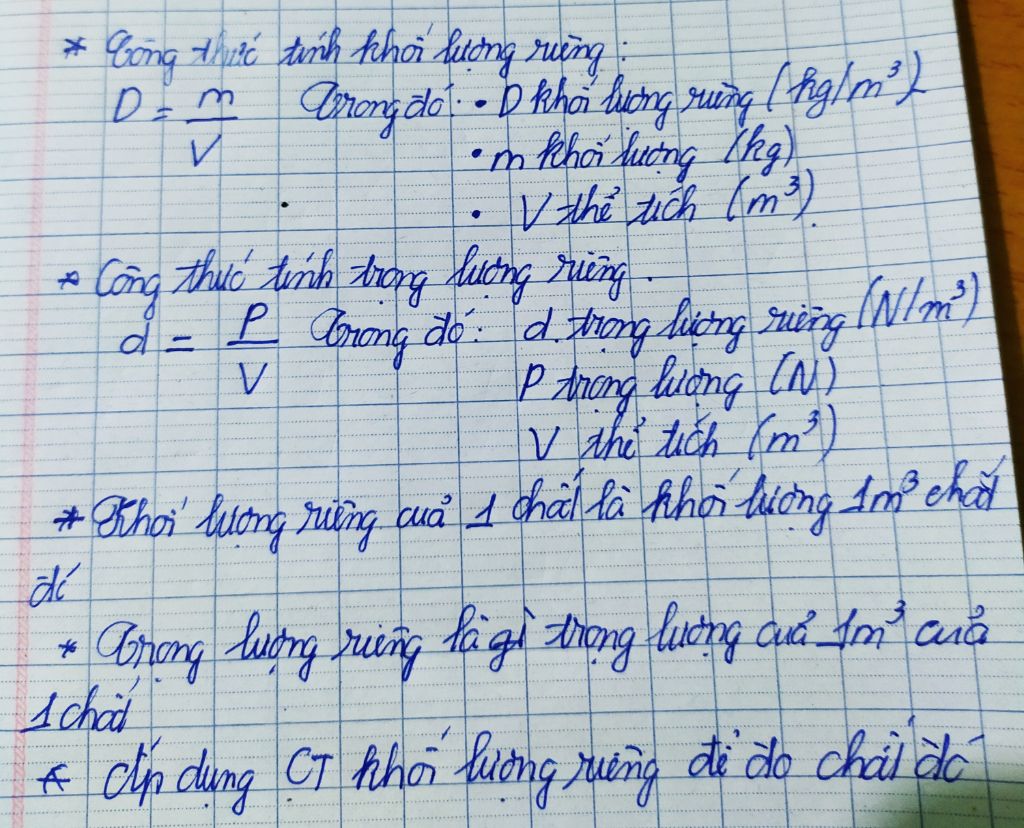 * Công thức tính khối lượng riêng:
D = m/V Trong đó: • D khối lượng riêng (kg/m³)
• m khối lượng (kg)
• V thể tích (m³)
* Công thức tính trọng lượng riêng.
d = P/V Trong đó: d. trọng lượng riêng (N/m³)
P trọng lượng (N)
V thể tích (m³)
* Khối lượng riêng cuả 1 chất là khối lượng 1m³ chất
đó
* Trọng lượng riêng là gì trọng lượng cuả 1m³ cuả
1 chất
* Áp dụng CT khối lượng riêng để đo chất đó